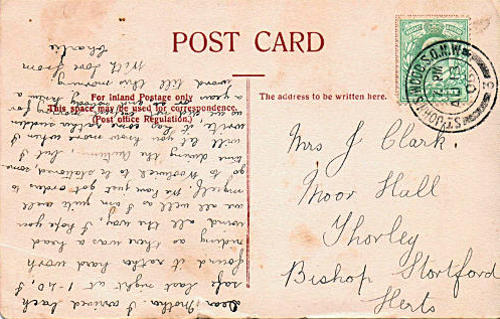 POST CARD
For Inland Postage only
This space may be used for correspondence.
(Post office Regulation.)
The address to be written here.
ST. JOHN'S WOOD. S.O. N.W.
3
Mrs J Clark.
Moor Hall
Thorley
Bishop Stortford
Herts
Dear Mother I arrived back
safe last night at 1-40, I
found it rather hard work
riding as there was a head
wind all the way, I hope you
are all well as I am quite well
myself. We have just got orders to
go to Woolwich to be stationed, some
time during the Autumn, but I
will let you know more when I
write
as
for
year
till this morning
word
With love from
Charlie